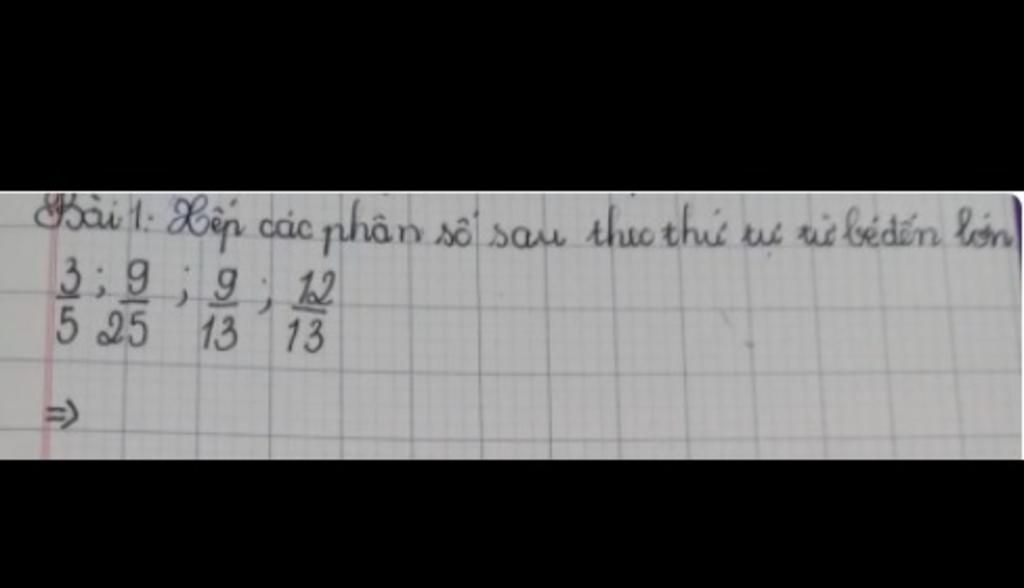 Bài 1: Xếp các phân số sau theo thứ tự từ bé đến lớn
3/5 ; 9/25 ; 9/13 ; 12/13
=>